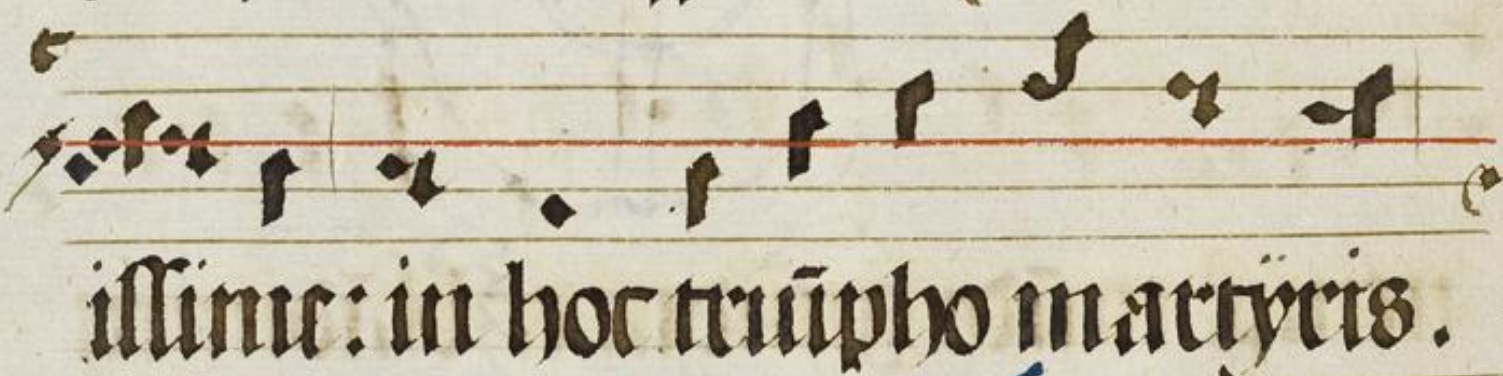 issime: in hoc triūpho martÿris.